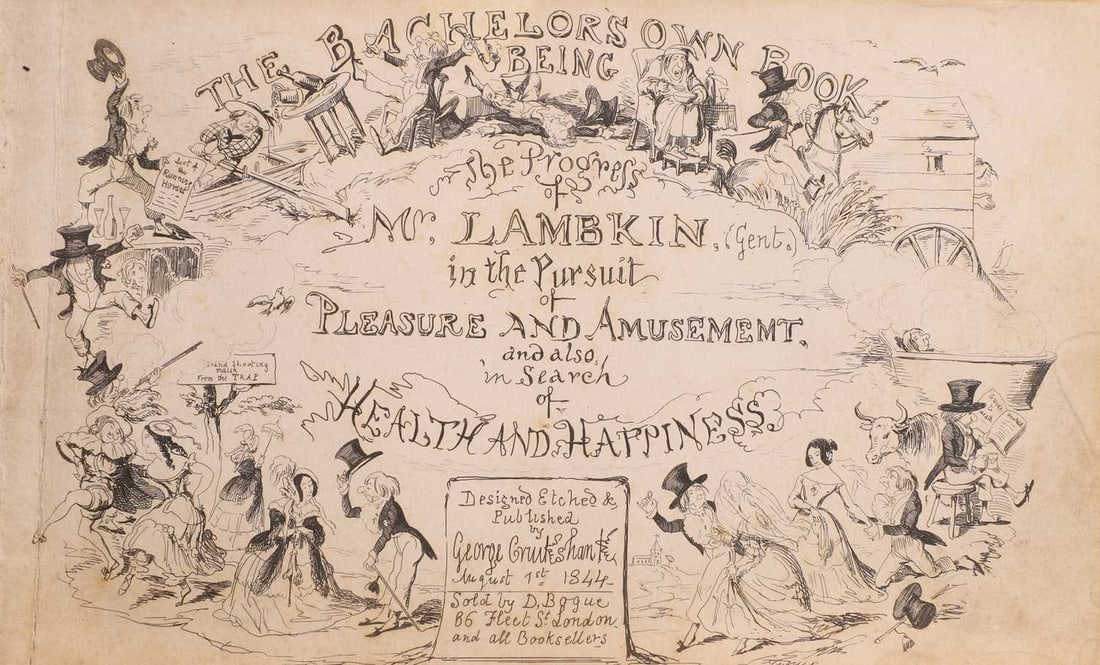 THE BACHELOR'S OWN BOOK
BEING
The Progress
of
Mr. LAMBKIN, (Gent.
in the Pursuit
of
PLEASURE AND AMUSEMEMT,
and also,
in Search
of
HEALTH AND HAPPINESS.
Designed Etched &
Published
by
George Cruikshank
August 1st 1844
Sold by D. Bogue
86 Fleet St London
and all Booksellers
the
Running
Horses
Grand Shooting
match
From the TRAP